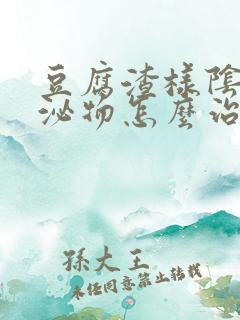 豆腐渣樣陰
泌物怎麼治
孫大王
未任同意禁止转载